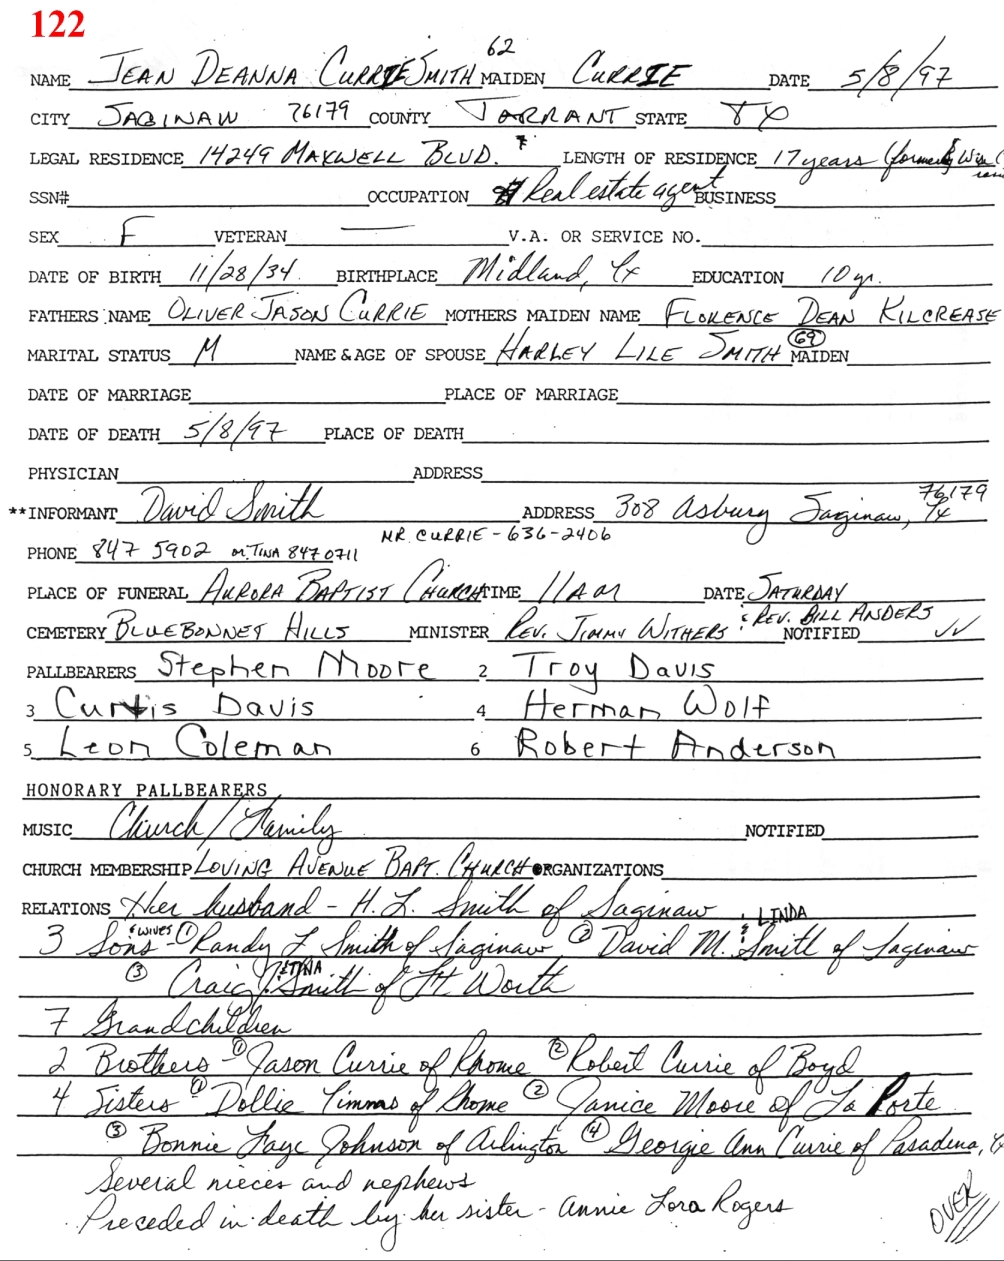 122
62
NAME JEAN DEANNA CURRIE SMITH MAIDEN CURRIE DATE 5/8/97
CITY SAGINAW 76179 COUNTY TARRANT STATE TX
LEGAL RESIDENCE 14249 MAXWELL BLVD. LENGTH OF RESIDENCE 17 years (formerly Wise
SSN# OCCUPATION Real estate agent BUSINESS
SEX F VETERAN — V.A. OR SERVICE NO.
DATE OF BIRTH 11/28/34 BIRTHPLACE Midland, Tx EDUCATION 10 yr.
FATHERS NAME OLIVER JASON CURRIE MOTHERS MAIDEN NAME FLORENCE DEAN KILCREASE
MARITAL STATUS M NAME & AGE OF SPOUSE HARLEY LILE SMITH 69 MAIDEN
DATE OF MARRIAGE PLACE OF MARRIAGE
DATE OF DEATH 5/8/97 PLACE OF DEATH
PHYSICIAN ADDRESS
**INFORMANT David Smith ADDRESS 308 Asbury Saginaw, Tx 76179
MR. CURRIE - 636-2406
PHONE 847 5902 or TINA 847 0711
PLACE OF FUNERAL AURORA BAPTIST CHURCH TIME 11 AM DATE SATURDAY
CEMETERY BLUEBONNET HILLS MINISTER REV. JIMMY WITHERS & REV. BILL ANDERS NOTIFIED ✓✓
PALLBEARERS Stephen Moore 2 Troy Davis
3 Curtis Davis 4 Herman Wolf
5 Leon Coleman 6 Robert Anderson
HONORARY PALLBEARERS
MUSIC Church/Family NOTIFIED
CHURCH MEMBERSHIP LOVING AVENUE BAPT. CHURCH ORGANIZATIONS
RELATIONS Her husband - H. L. Smith of Saginaw
3 Sons & WIVES ① Randy L Smith of Saginaw ② David M. & LINDA Smith of Saginaw
③ Craig J. & TINA Smith of Ft Worth
7 Grandchildren
2 Brothers - ① Jason Currie of Rhome ② Robert Currie of Boyd
4 Sisters ① Dollie Timms of Rhome ② Janice Moore of La Porte
③ Bonnie Faye Johnson of Arlington ④ Georgie Ann Currie of Pasadena, Tx
Several nieces and nephews
Preceded in death by her sister - Annie Lora Rogers
OVER